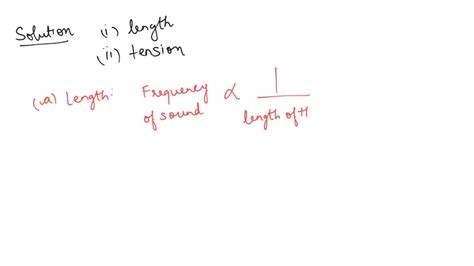 Solution (i) length
(ii) tension
(a) Length: Frequency of sound ∝ 1 / length of